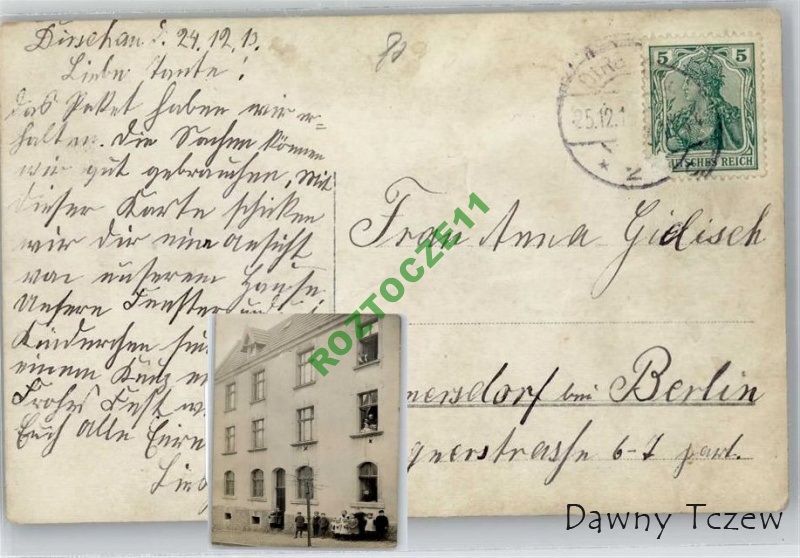 Dirschau d. 24.12.13.
Liebe Tante!
das Paket haben wir er=
halten. Die Sachen können
wir gut gebrauchen, Mit
dieser Karte schicken
wir dir eine Ansicht
von unserem Hause.
Unsere Fenster und
Kinderchen
einem Kreuz
Frohes Fest
Euch alle Eure
DIRSCH
25.12.1
* 2
5 5
DEUTSCHES REICH
Frau Anna Gidisch
mersdorf bei Berlin
gnerstrasse 6-7 part.
ROZTOCZE11
Dawny Tczew